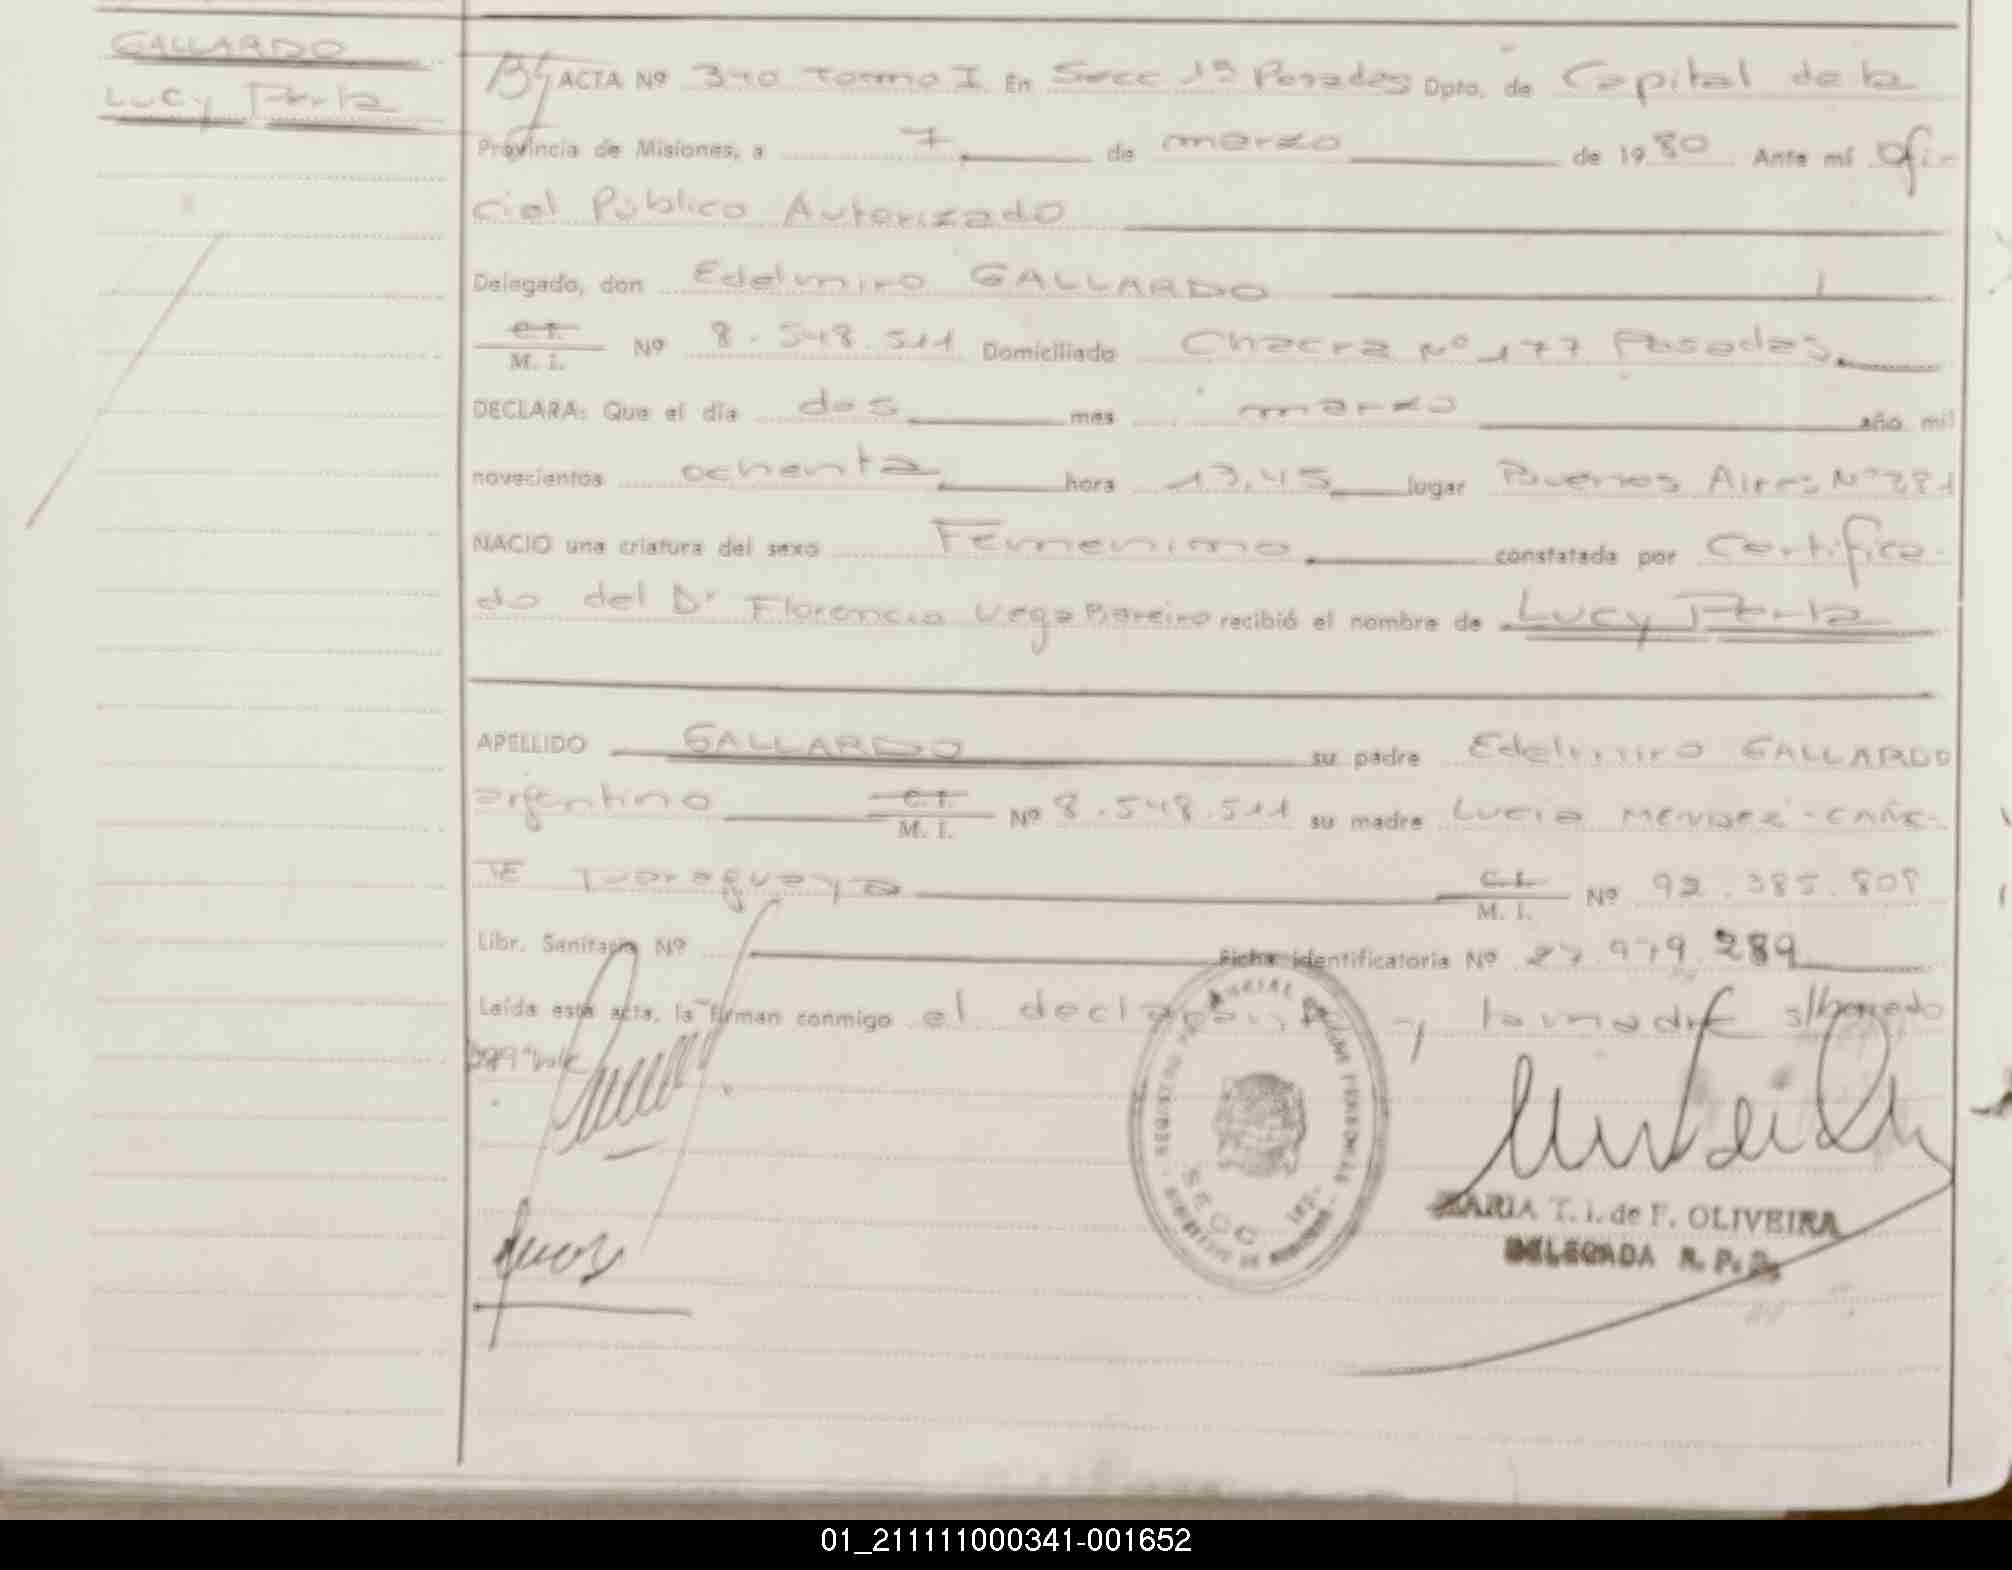 GALLARDO
Lucy Perla
ACTA Nº 340 Tomo I En Secc 1ª Posadas Dpto. de Capital de la
Provincia de Misiones, a 7 de marzo de 1980 Ante mí Ofi-
cial Público Autorizado
Delegado, don Edelmiro GALLARDO
C. I.
M. I. Nº 8.548.511 Domiciliado Chacra Nº 177 Posadas
DECLARA: Que el día dos mes marzo año mil
novecientos ochenta hora 13,45 lugar Buenos Aires Nº 281
NACIO una criatura del sexo Femenino constatada por Certifica-
do del Dr Florencio Vega Bareiro recibió el nombre de Lucy Perla
APELLIDO GALLARDO su padre Edelmiro GALLARDO
argentino C. I.
M. I. Nº 8.548.511 su madre Lucia MENDEZ-CAÑE-
TE Paraguaya C. I.
M. I. Nº 92.385.808
Libr. Sanitaria Nº Ficha identificatoria Nº 27.979.289
Leída esta acta, la firman conmigo el declarante y la madre s/borrado
289 vale
REGISTRO PROVINCIAL DE LAS PERSONAS
SECC 1ª
MARIA T. I. de F. OLIVEIRA
DELEGADA R. P. P.
01_211111000341-001652